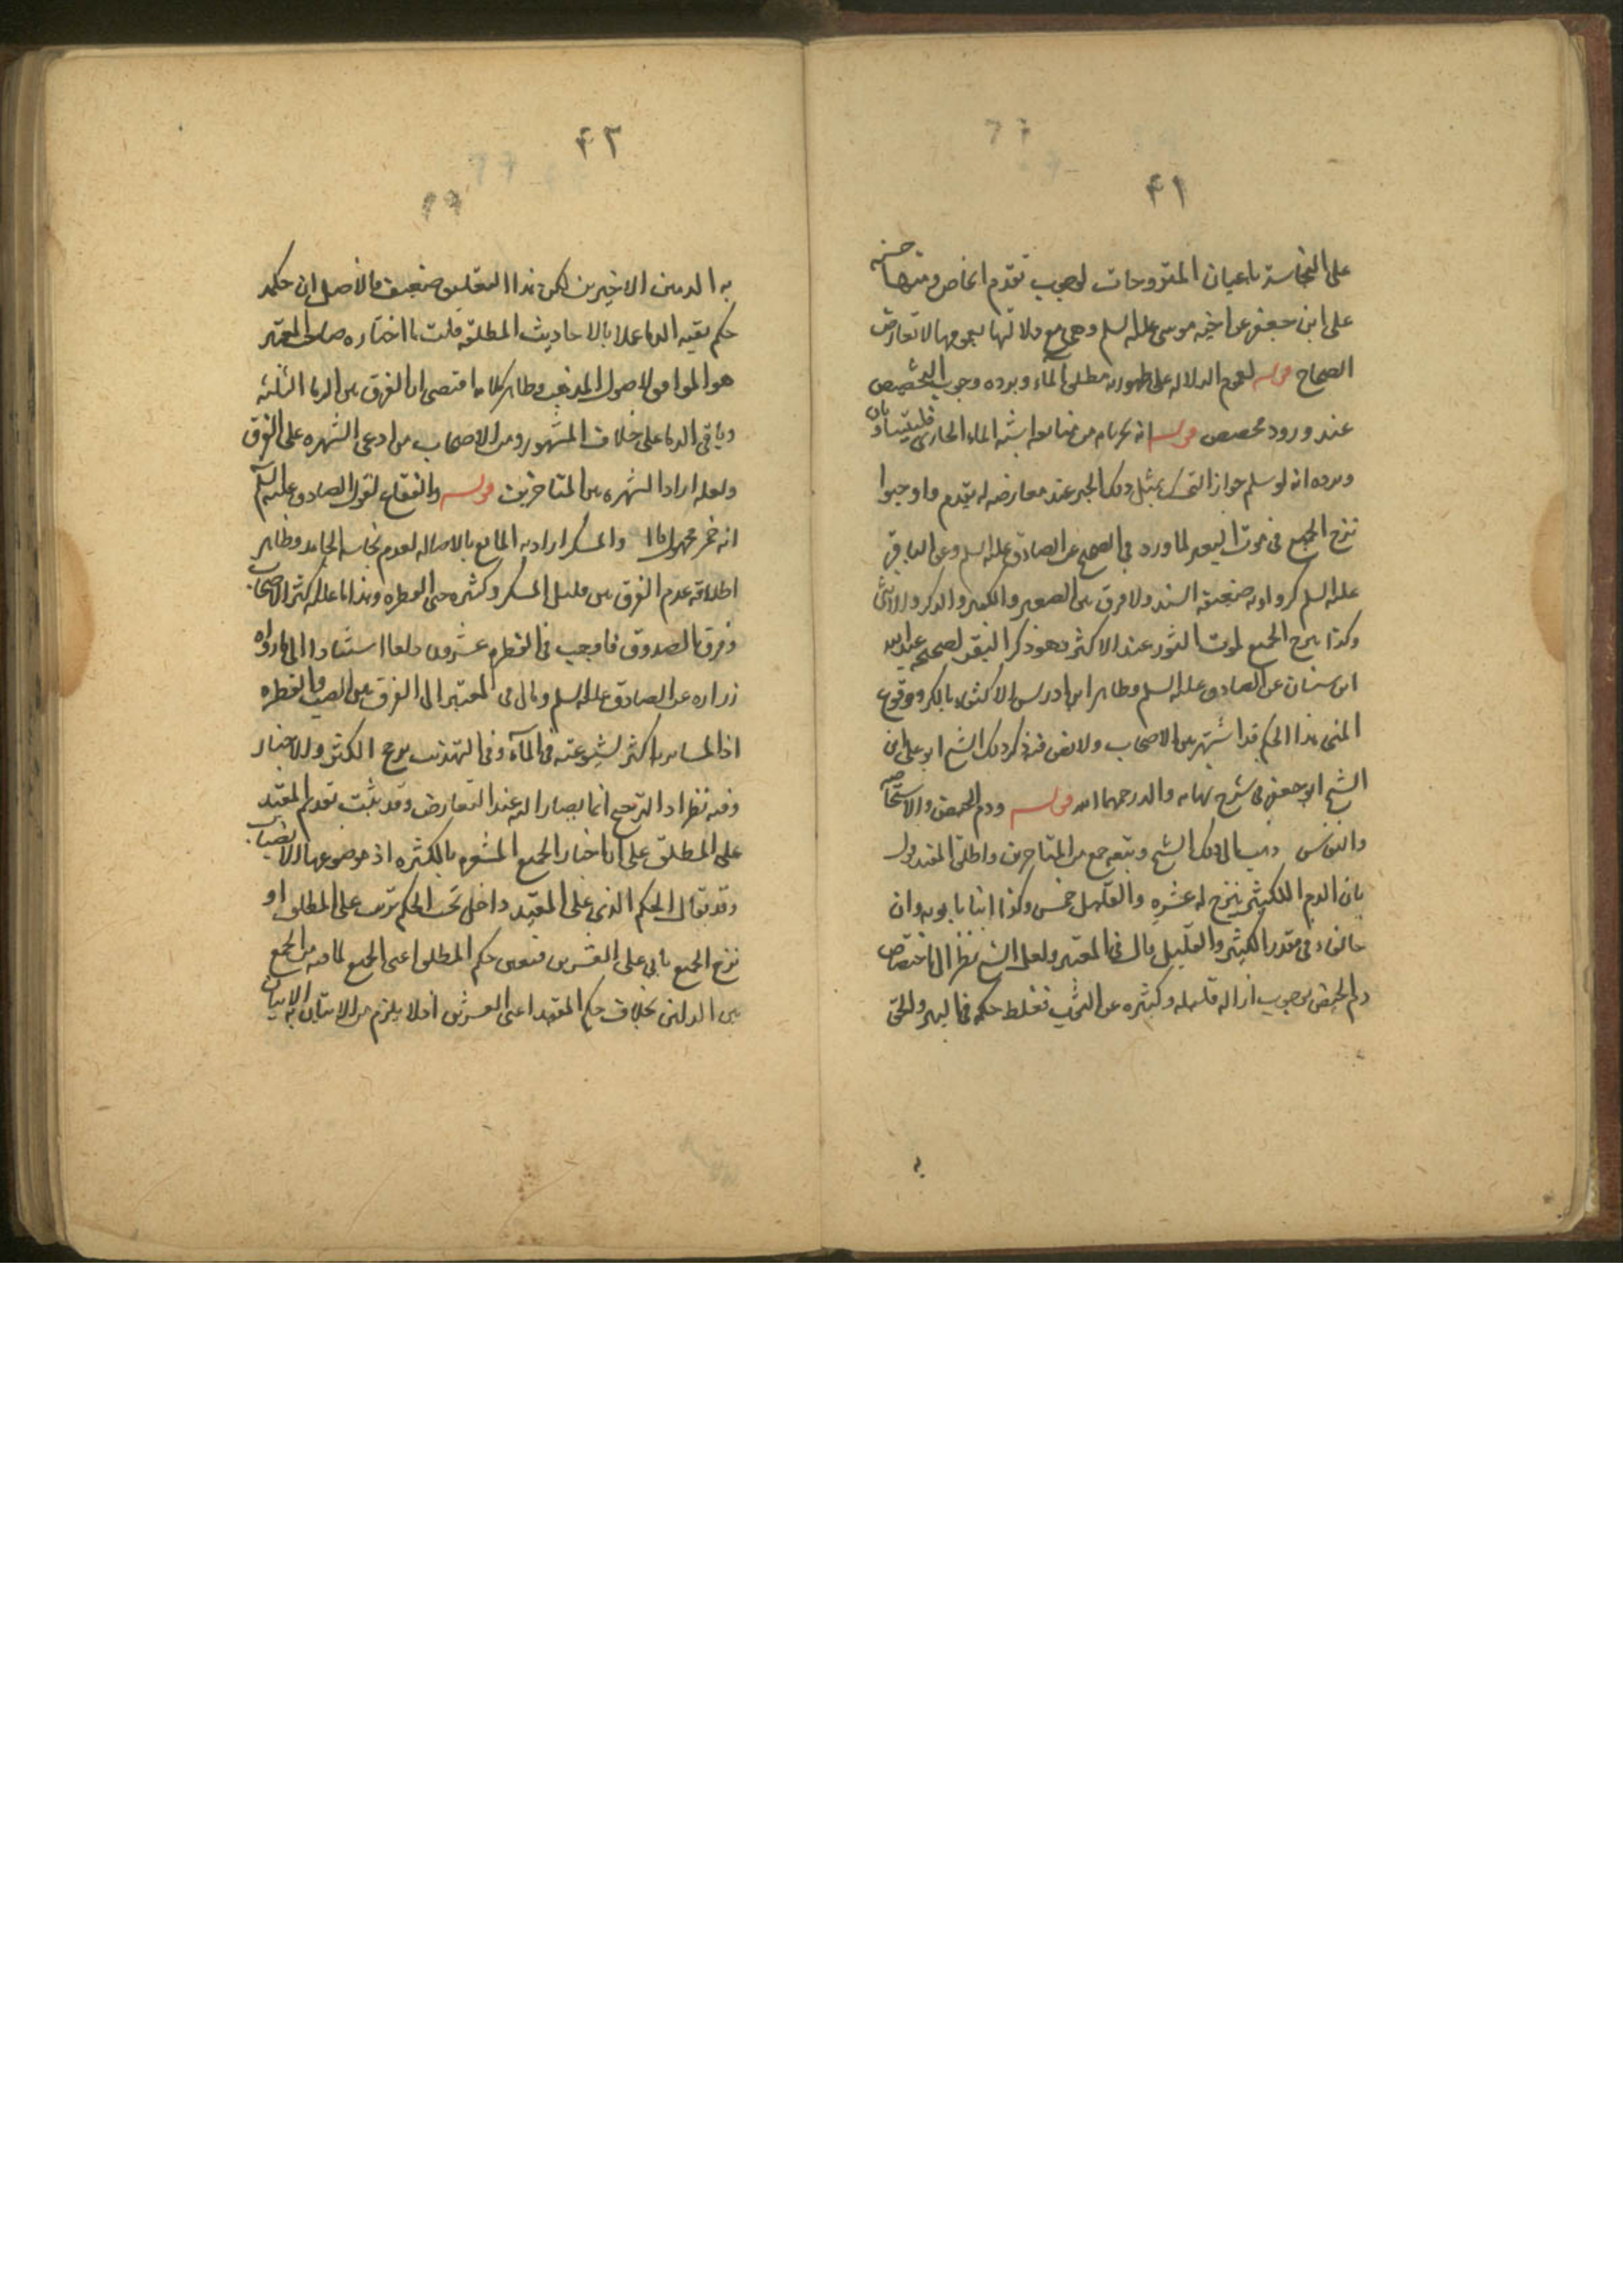 ٤١
على النجاسة باعيان المنزوحات لوجوب تقدم الخاص ومنها حسنه
على ابن جعفر عن اخيه موسى عليه السلم وهى مع دلالتها بعمومها لا تعارض
الصحاح قوله لعموم الدلاله على طهورية مطلق الماء ويرده وجوب التخصيص
عند ورود مخصص قوله انه بجريانه من منابعه اشبه الماء الجارى فليتساويان
ويرده انه لو سلم جواز التمسك بمثل ذلك الجبر عند معارضه له يقدم واوجبوا
نزح الجميع فى موت البعير لما ورد فى الصحيح عن الصادق عليه السلم وعن الباقر
عليه السلم كرواية ضعيفة السند ولا فرق بين الصغير والكبير والذكر والانثى
وكذا نزح الجميع لموت الثور عند الاكثر وهو ذكر البقر لصحيحه عبدالله
ابن سنان عن الصادق عليه السلم وظاهر ابن ادريس الاكتفاء بالكر ووقوع
المنى هذا الحكم قد اشتهر بين الاصحاب ولا نص فيه ذكر ذلك الشيخ ابو على ابن
الشيخ ابى جعفر فى شرح نهاية والده رحمهما الله قوله ودم الحيض والاستحاضه
والنفاس ذهب الى ذلك الشيخ وتبعه جمع من المتاخرين واطلق المفيد قوله
بان الدم الكثير ينزح له عشره والقليل خمس وكذا ابنا بابويه وان
خالفاه فى مقدر الكثير والقليل قال فى المعتبر ولعل الشيخ نظر الى اختصاص
دم الحيض بوجوب ازاله قليله وكثيره عن الثوب فغلط حكمه فى البير والحق
به
٤٢
به الدمين الاخيرين لكن هذا التعليق ضعيف فالاصل ان حكمه
حكم بقيه الدماء عملا بالاحاديث المطلقه قلت ما اختاره صاحب المعتبر
هو الموافق لاصول المذهب وظاهر كلامه اقتضى ان الفرق بين الدماء الثلثه
وباقى الدماء على خلاف المشهور ومن الاصحاب من ادعى الشهره على الفرق
ولعله اراد الشهره بين المتاخرين قوله والفقاع لقول الصادق عليه السلم
انه خمر مجهول والمسكر اراد به المايع بالاصاله لعدم نجاسه الجامد وظاهر
اطلاقه عدم الفرق بين قليل المسكر وكثيره حتى القطره وهذا ما عليه اكثر الاصحاب
وفرق الصدوق فاوجب فى القطره عشرون دلوا استنادا الى ما رواه
زراره عن الصادق عليه السلم ومال فى المعتبر الى الفرق بين الصب والقطره
اذ اكثر لشيوعته فى الماء وفى التهذيب يرجح الكثير والاخبار
وفيه نظر اذ الترجيح انما يصار اليه عند التعارض وقد ثبت تقدم المقيد
على المطلق على ان اخبار الجميع المشعره بالكثره اذ موضوعها الانصباب
وقد يقال الحكم الذى على المقيد داخل تحت الحكم ترتب على المطلق او
نزح الجميع ياتى على العشرين فتعين حكم المطلق اعنى الجميع لما فيه من الجمع
بين الدليلين بخلاف حكم المقيد اعنى العشرين اذ لا يلزم من الاتيان به الاتيان